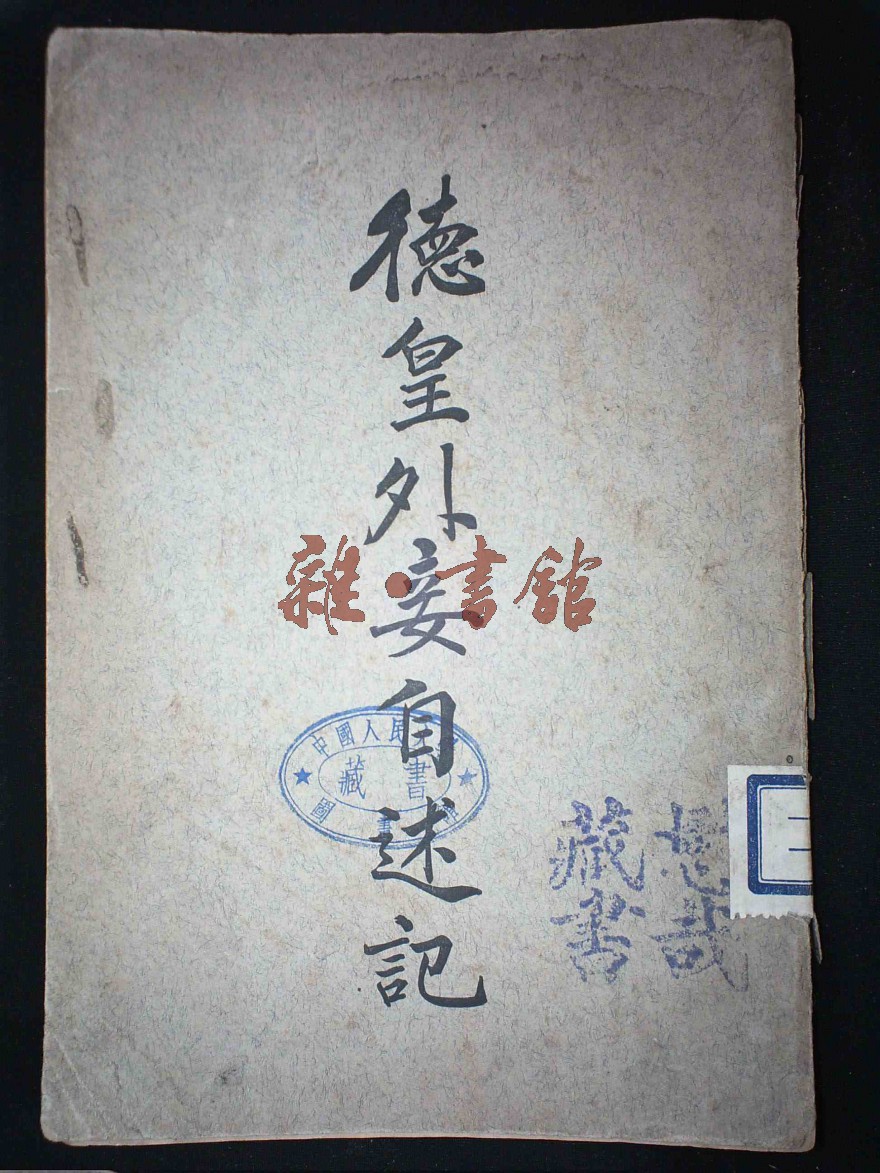 德皇外妾自述記
雜·書館
中國人民
藏書
圖書
藏書